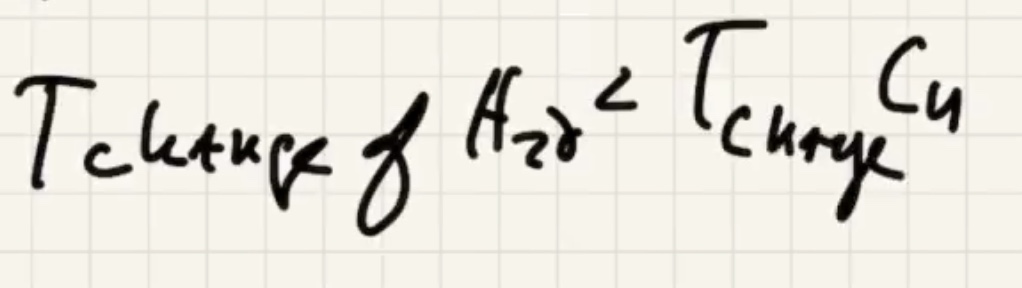 T change of H₂O < T change Cu